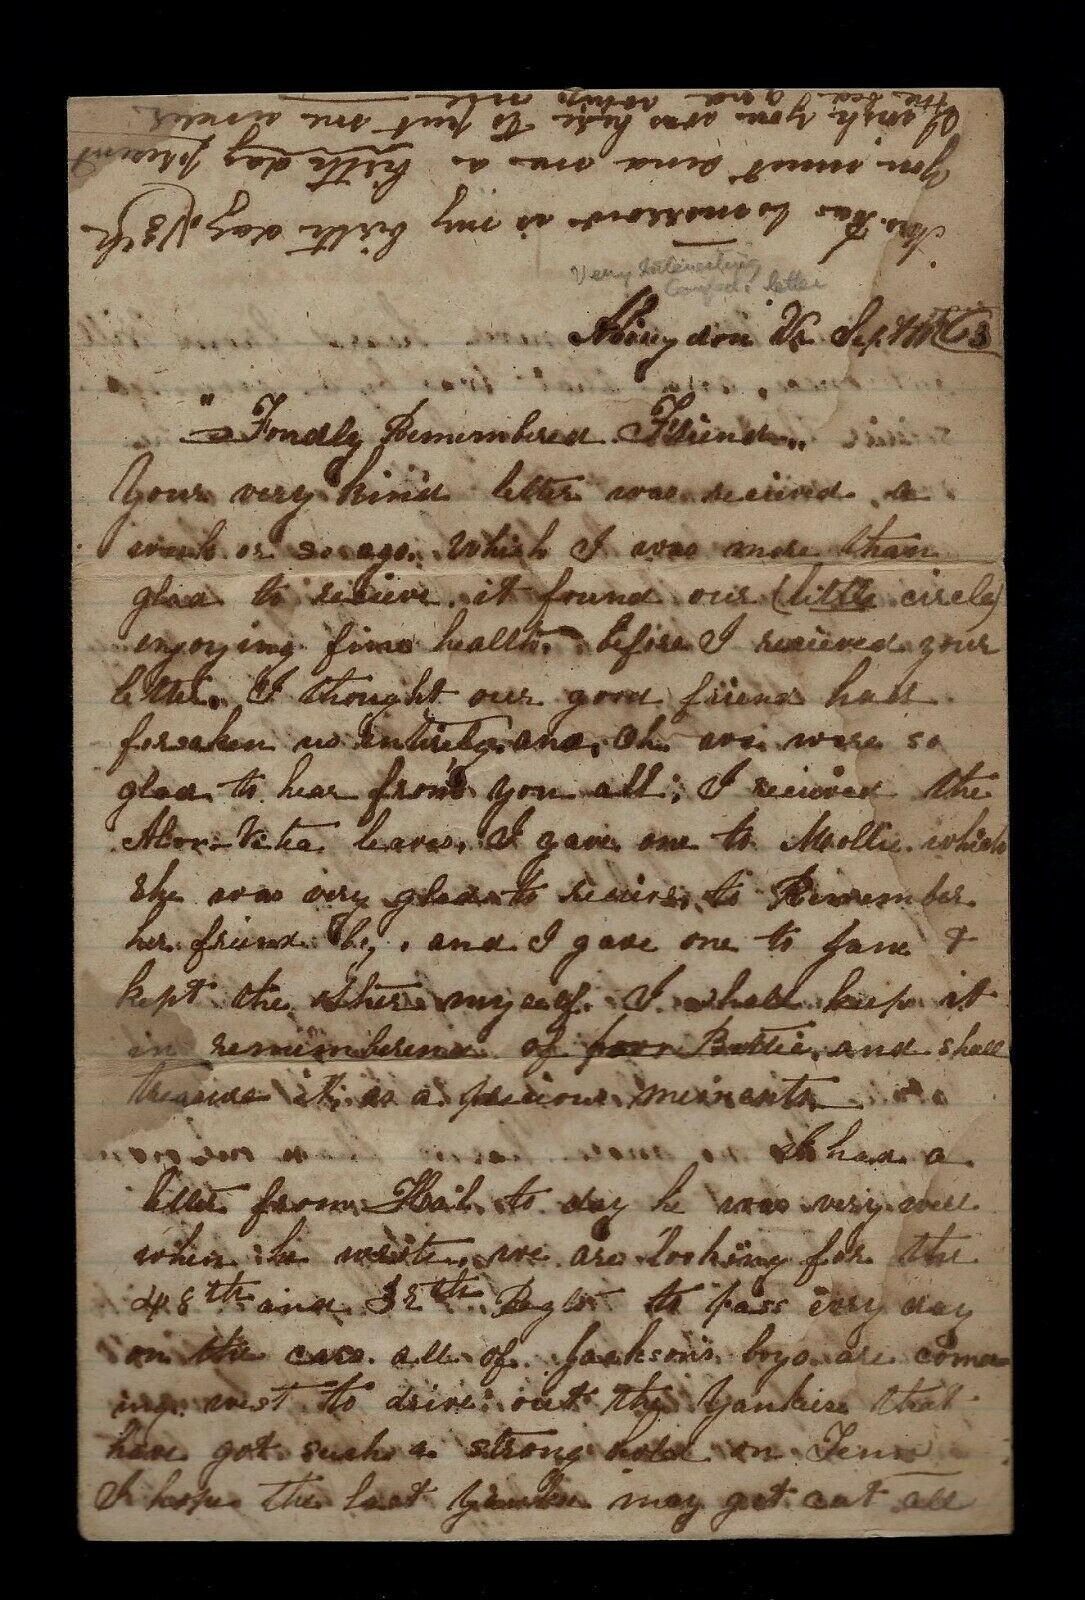 tomorrow is my birth day, 18th
You must send me a birth day present
I wish you was here to put me under
the bed
Very Interesting
Confed. letter
Abingdon Va Sept 63
"Fondly Remembered Friend"
Your very kind letter was recieved a
week or so ago. Which I was more than
glad to recieve. it found our (little circle)
enjoying fine health. before I recieved your
letter. I thought our good friend had
forsaken us entirely, and, Oh we were so
glad to hear from you all; I recieved the
Abor-Vitea leaves. I gave one to Mollie which
she was very glad to recieve, to Remember
her friend by, and I gave one to Jane &
kept the other myself. I shall keep it
in rememberence of Bettie, and shall
treasure it, as a precious memento
I had a
letter from to day he was very well
when he wrote. we are looking for the
48th and Regt to pass every day
on the cars. all of Jackson's boys are come-
ing west to drive out the Yankees that
have got such a strong hold on Tenn
I hope the last Yankee may get cut all